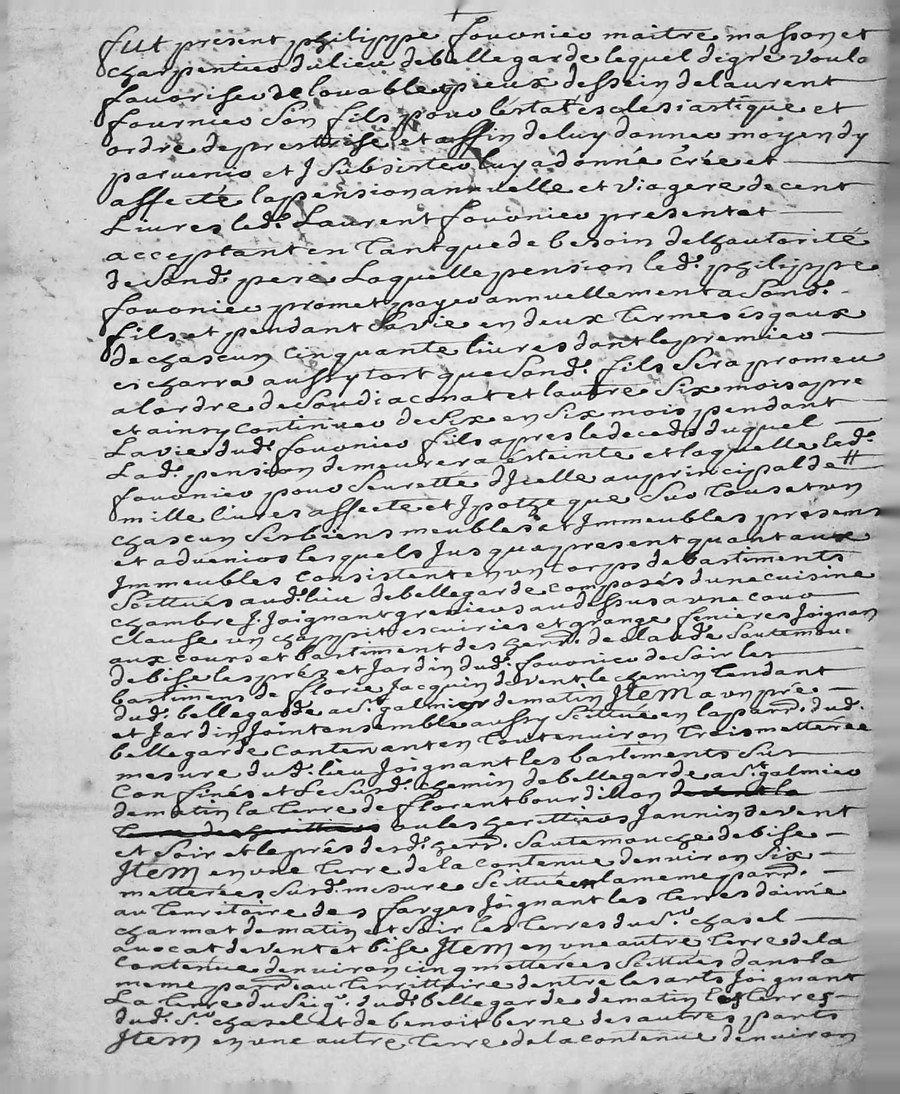 fut present philippe fournier maitre masson et
charpentier du lieu de bellegarde lequel de gré voula
favoriser de louable et pieux dessein de laurent
fournier son fils pour lestat eclesiastique et
ordre de prestrise et affin de luy donner moyen dy
parvenir et y subsister luy a donné créé et
affecté la pension annuelle et viagere de cent
livres led. Laurent fournier present et
acceptant en tant que de besoin de lhautorité
de sond. pere Laquelle pension led. philippe
fournier promet payer annuellement a sond.
fils et pendant sa vie en deux termes esgaux
de chascun cinquante livres dont le premier
eicharra aussytost que sond. fils sera promeu
a lordre de soudiaconat et lautre six mois apre
et ainsy continuer de six en six mois pendant
La vie dud. fournier fils apres le deceds duquel
Lad. pension demeurera esteinte et laquelle led.
fournier pour seurette dicelle au principal de
mille livres affecte et ypoteque sur tous et un
chascun ses biens meubles et Immeubles presens
et advenirs lesquels jusqu'a present quant aux
Immeubles consistent en un corps de bastiments
scittués aud. lieu de bellegarde composés dune cuisine
chambre y joignant greniers au dessus avec une cour
clause un chappit escuiries et grange fenieres joignan
aux cours et bastiment des herr. de claude sautemou
de bise les prés et jardin dud. fournier de soir les
bastimens de florie jacquin de vent le chemin tendant
dud. bellegarde a St galmier de matin Item a un pré
et jardin joint ensemble aussy scittué en la parr. dud.
bellegarde contenant en tout environ trois metterée
mesure dud. lieu joignant les bastiments sus
confinés et le susd. chemin de bellegarde a St galmier
de matin la terre de florent bourdillon
ou les heritiers jannin de vent
et soir et le prés desd. herr. sautemouche de bise
Item en une terre de la contenue denviron six
metterées susd. mesure scittuée en la meme parr.
au territoire des farges joignant les terres daimé
charmat de matin et soir les terres du sr. chasel
avocat de vent et bise Item en une autre terre de la
contenue denviron cinq metterées scittués dans la
meme parr. au territtoire dentre les arts joignant
La terre du seigr. dud. bellegarde de matin les terres
dud. sr. chasel et de benoit berne des autres parts
Item en une autre terre de la contenue denviron